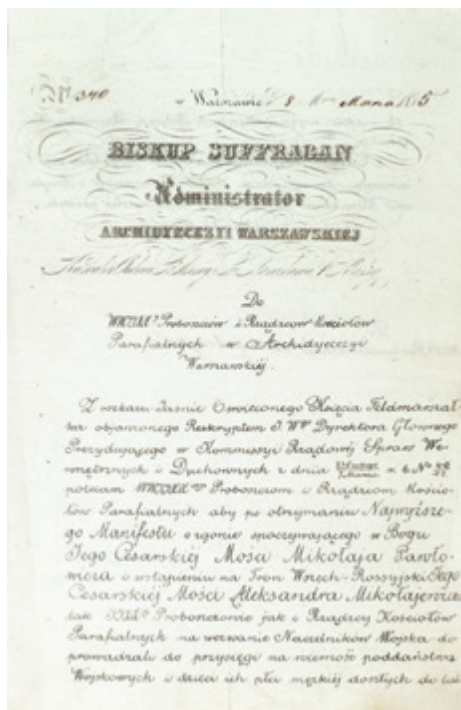 № 340 w Warszawie d. 8 Marca 1855
BISKUP SUFFRAGAN
Administrator
ARCHIDYECEZYI WARSZAWSKIEJ
Do
Proboszczów i Rządzców Kościołów
Parafialnych w Archidyecezyi
Warszawskiej.
Z rozkazu Jaśnie Oświeconego Księcia Feldmarszał-
ka objawionego Reskryptem J. W. Dyrektora Głównego
Prezydującego w Kommissyi Rządowej Spraw We-
wnętrznych i Duchownych z dnia
polecam Proboszczom i Rządzcom Kościo-
łów Parafialnych aby po otrzymaniu Najwyższe-
go Manifestu o zgonie spoczywającego w Bogu
Jego Cesarskiej Mości Mikołaja Pawło-
wicza i wstąpieniu na Tron Wszech-Rossyjski Jego
Cesarskiej Mości Aleksandra Mikołajewicza
tak Proboszczowie jak i Rządzcy Kościołów
Parafialnych na wezwanie Naczelników Wojska do-
prowadzali do przysięgi na wierność poddaństwa
Wojskowych i dzieci ich płci męzkiej doszłych do lat